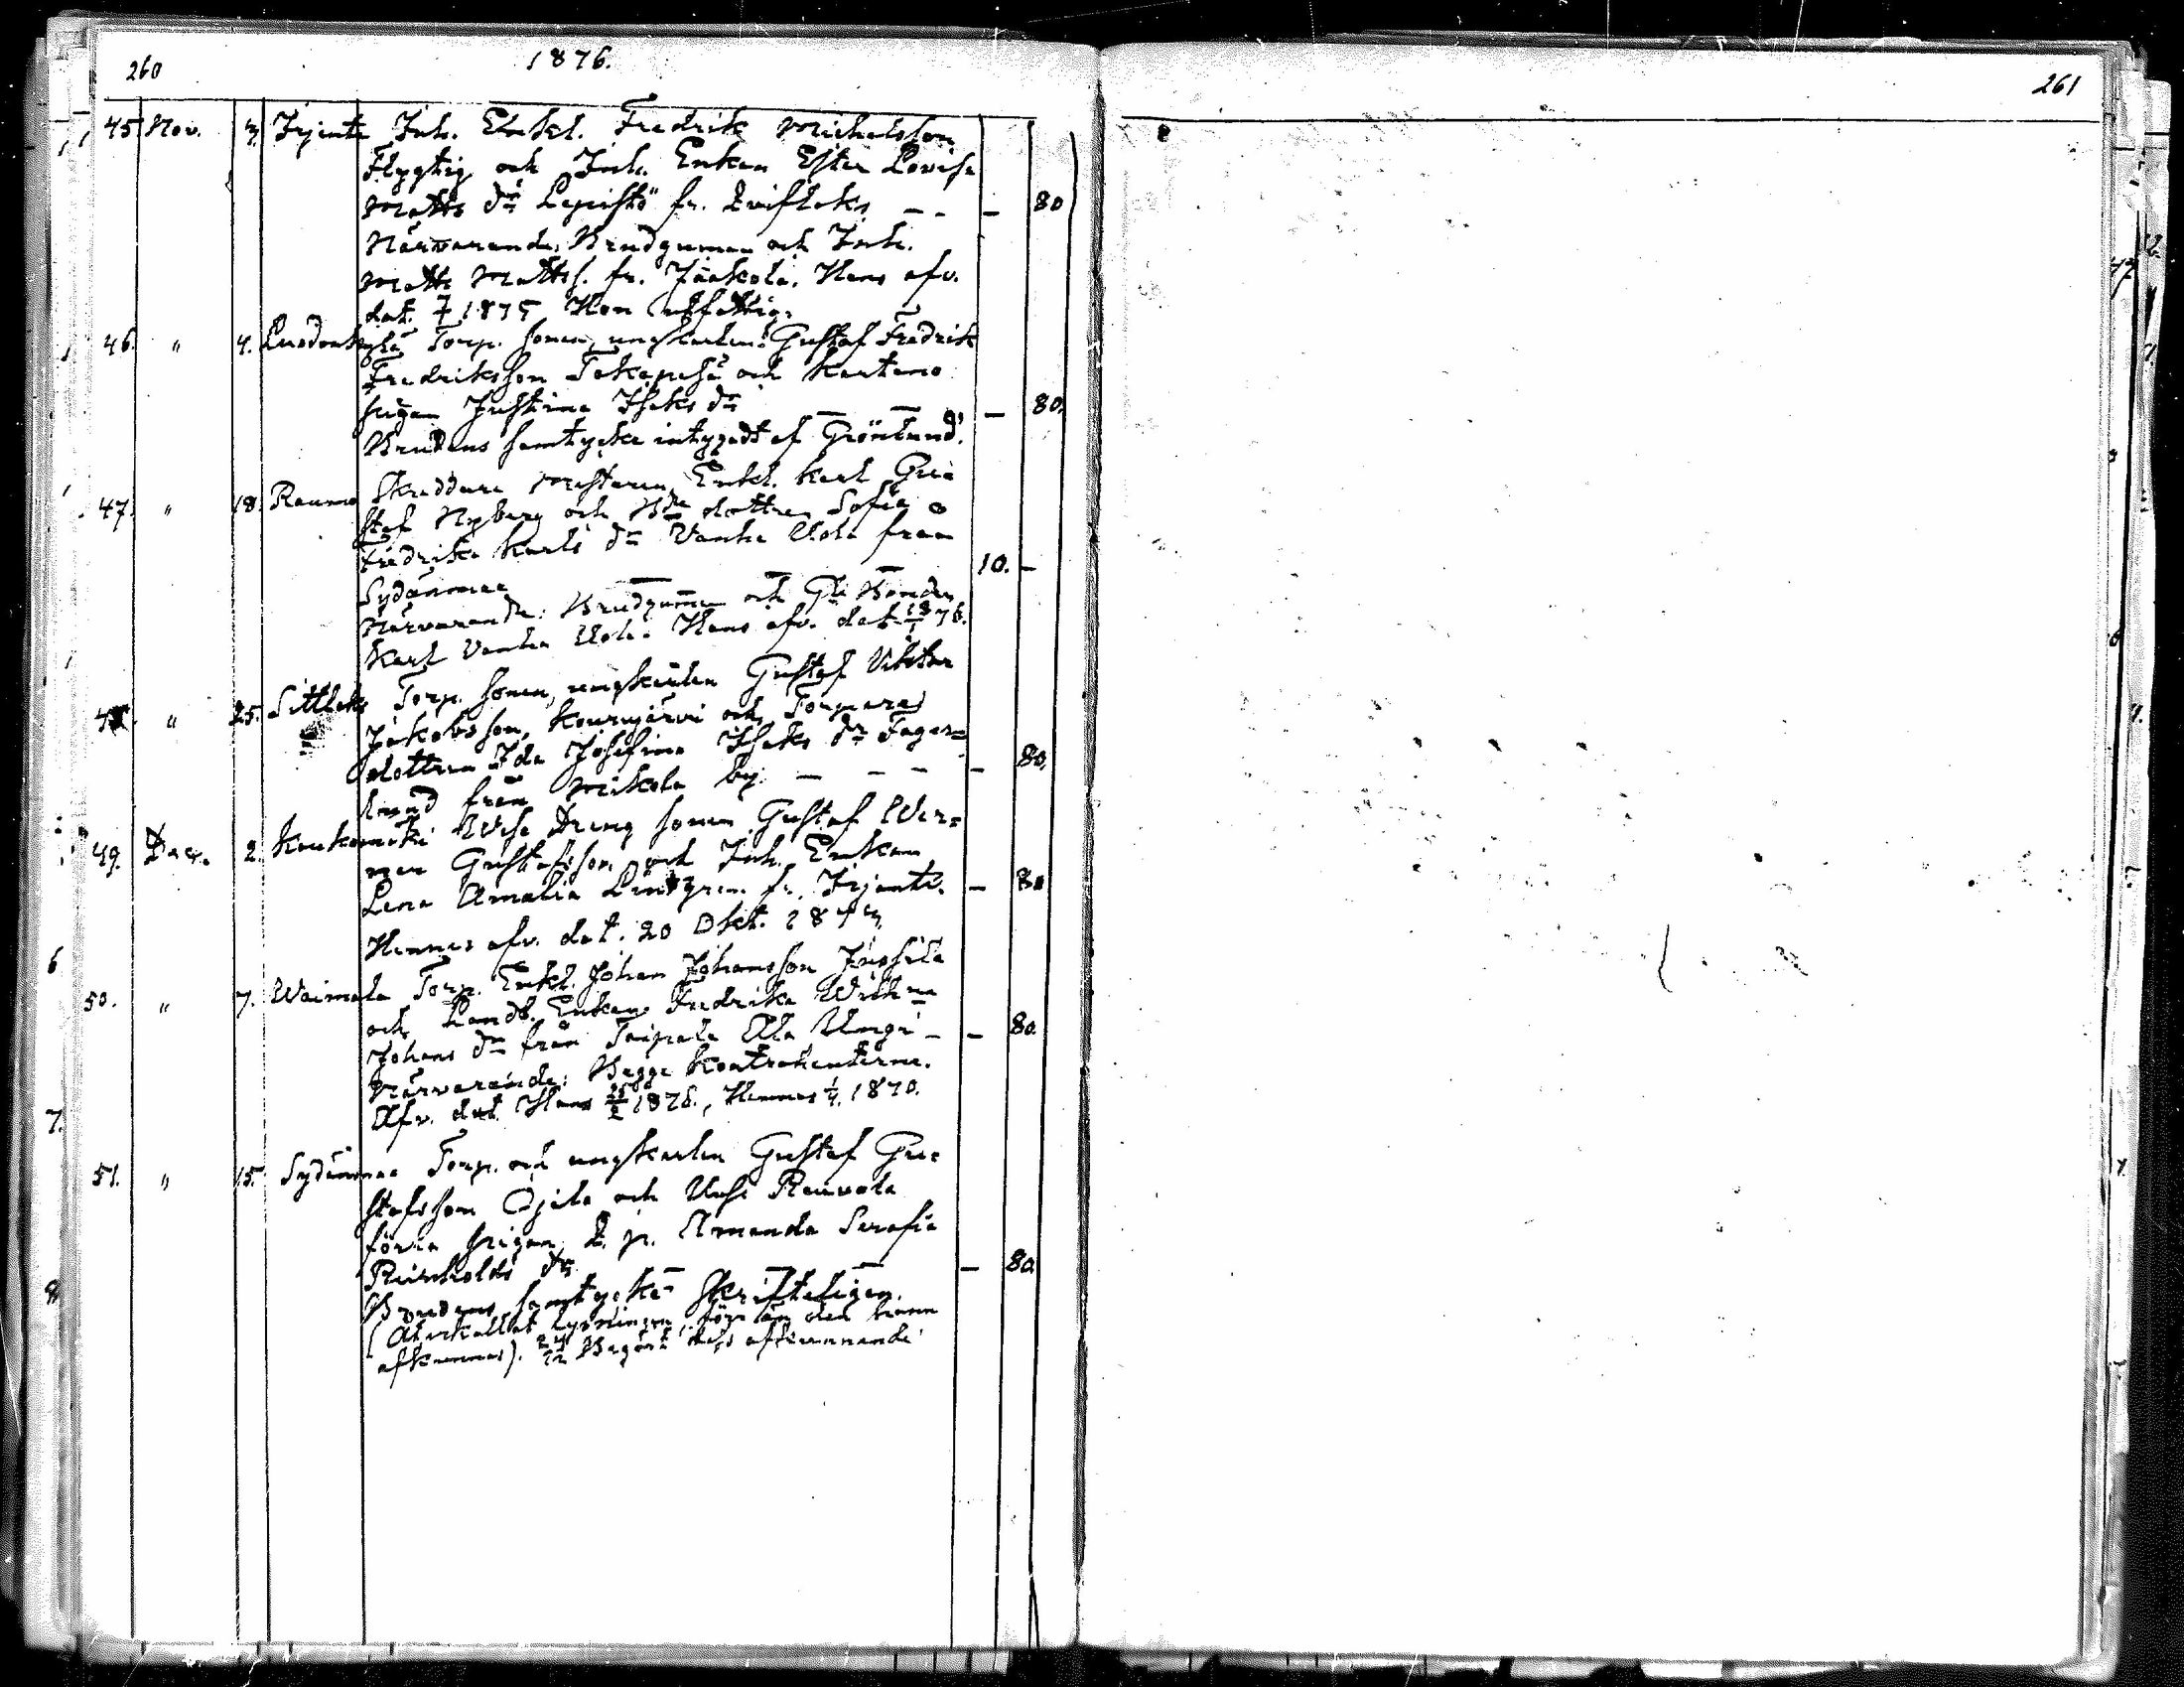 260 1876. 261
45 Nov. 3. Irjante Inh. Enkel. Fredrik Michelsson
Flygtig och Inh. Enkan Ester Lovisa
Matts dr Lepistö fr. — — — 80
Närvarande: Brudgumen och Inh.
Matts Mattss. fr. Jaakola. Hans afv.
dat. 1875 Hon utfattig.
46. " 4. Torp. sonen, ungkarlen Gustaf Fredrik
Fredriksson och Kartano
pigan Justina Isaks dr — — — 80.
Brudens samtycke intygadt af Grönlund.
47. " 18. Raumo Skräddare mästaren, Enkl. Karl Gu=
staf Nyberg och Bde dottren Sofia
Fredrika Karls dr Vanha Uola från
Sydänmaa — — 10. —
Närvarande: Brudgumen och Gla Bonden
Karl Vanha Uola. Hans afv. dat. 76.
" 25. Sittlaks Torp. sonen, ungkarlen Gustaf Viktor
Jakobsson, och Torpare
dottren Ida Josefina Isaks dr Fager=
lund från Mikola by. — — — — 80.
49. Dec. 2. Koukomäki Dreng sonen Gustaf Wer=
ner Gustafsson och Inh. Enkan
Lena Amalia Lindgren fr. Irjante. — 80
Hennes afv. dat. 20 Okt.
50. " 7. Waimala Torp. Enkl. Johan Johansson Jussila
och Landb. Enkan Fredrika Wilhna
Johans dr från Taipale Ala Ungi — — 80.
Närvarande: Begge Kontrahenterne.
Afv. dat. Hans 1876., Hennes 1870.
51. " 15. Sydänmaa Torp. och ungkarlen Gustaf Gu=
stafsson Ojila och
förra pigan Amanda Serafia
Reinholds dr — — — 80.
Brudens samtycke skrifteligen.
(Återkallat lysningen, förr än den hann
afkunnas). Begärt dess afkunnande